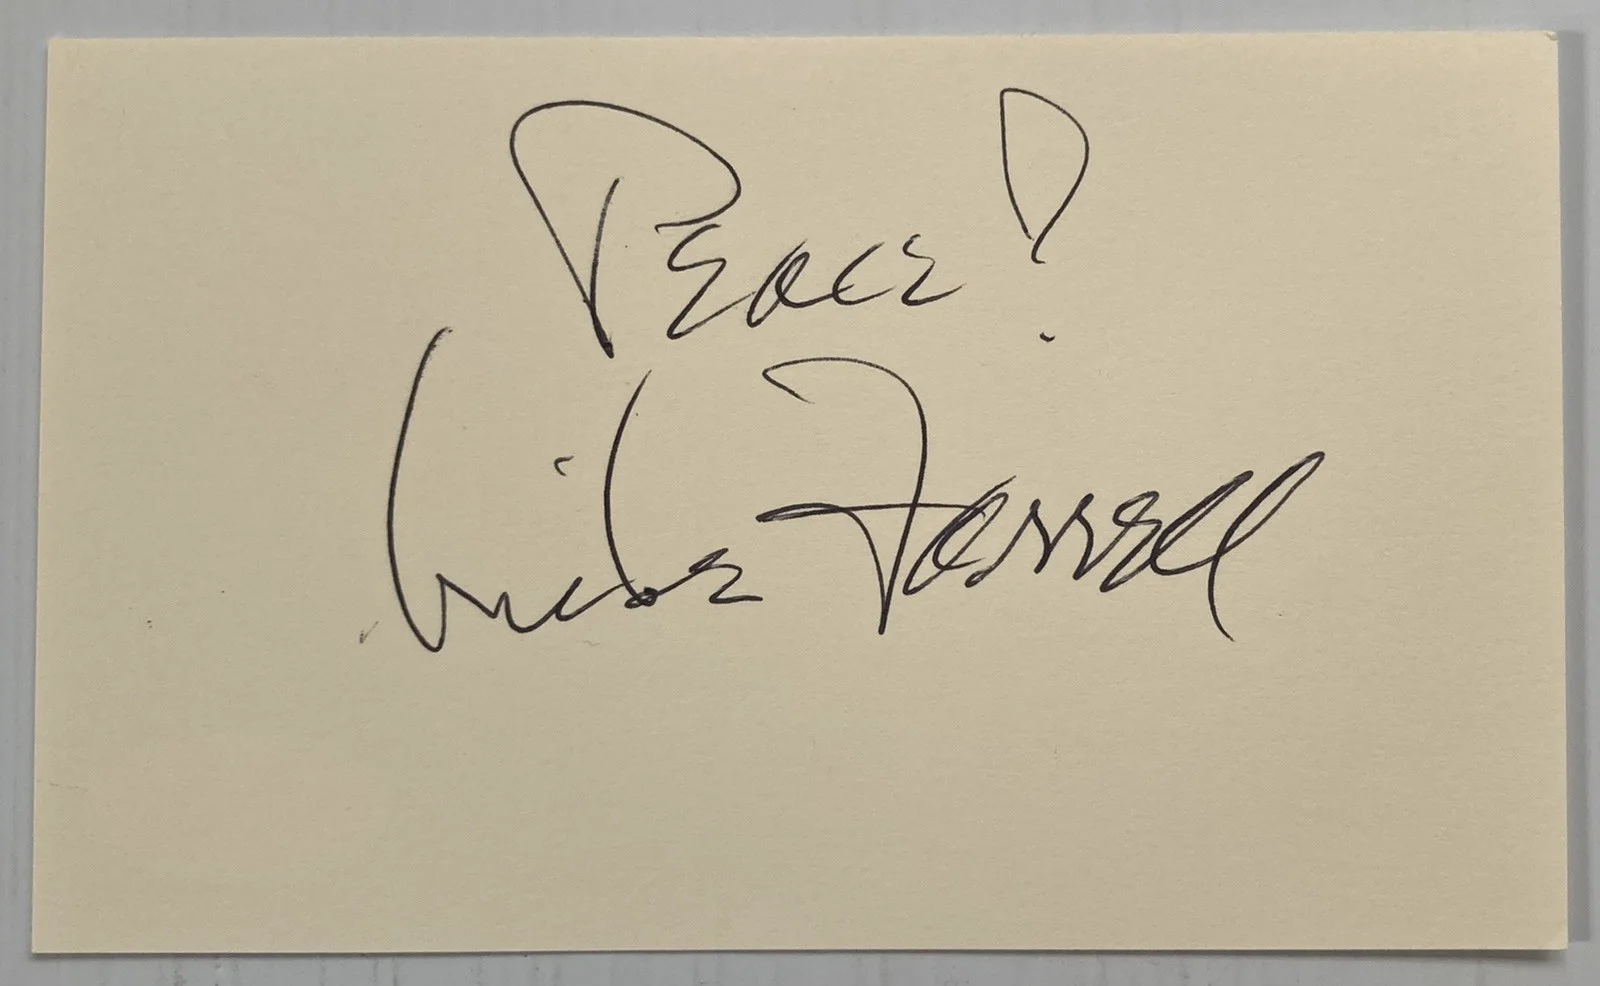 Peace!
Mike Farrell